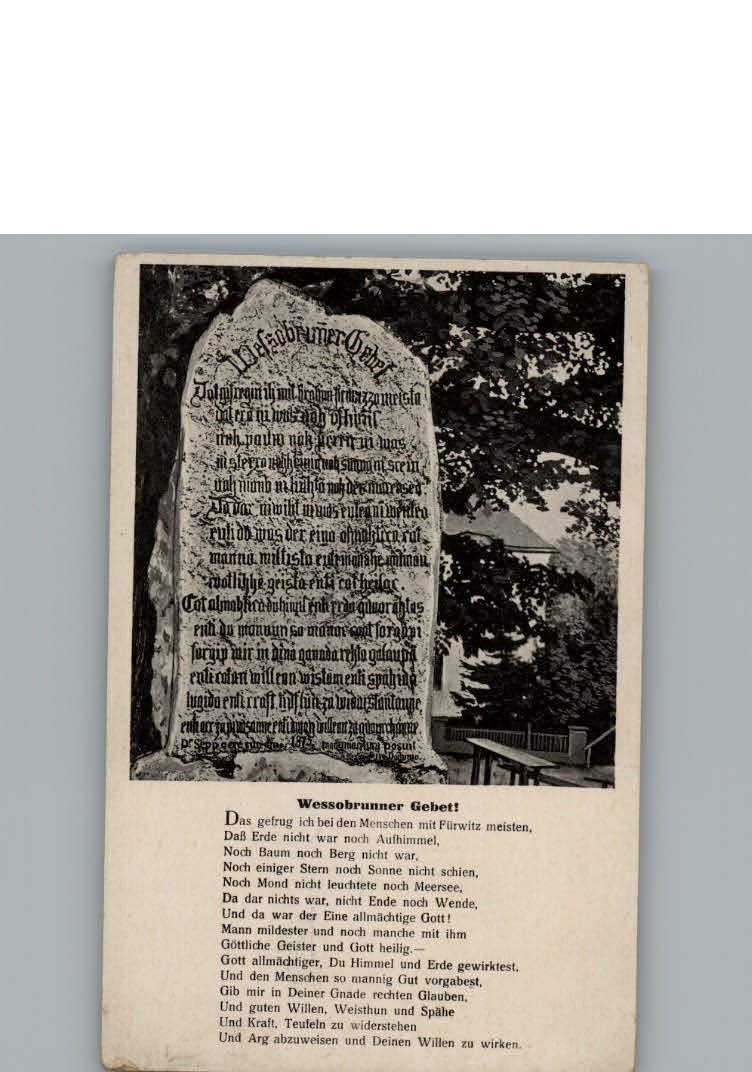 Wessobrunner Gebet
Dat
meista
dat ero ni was noh ufhimil
noh paum noh pereg ni was
ni sterro nohheinig noh sunna ni scein
noh mano ni liuhta noh der mareoseo
Do dar niwiht ni was enteo ni wenteo
enti do was der eino almahtico cot
manno miltisto enti manake mit inan
cootlihhe geista enti cot heilac
Cot almahtico du himil enti erda
enti du mannun so manac coot forgapi
forgip mir in dina ganada rehta galaupa
enti cotan willeon wistom enti spahida
enti craft
enti arc
1875 monumentum posuit
Wessobrunner Gebet!
Das gefrug ich bei den Menschen mit Fürwitz meisten,
Daß Erde nicht war noch Aufhimmel,
Noch Baum noch Berg nicht war,
Noch einiger Stern noch Sonne nicht schien,
Noch Mond nicht leuchtete noch Meersee,
Da dar nichts war, nicht Ende noch Wende,
Und da war der Eine allmächtige Gott!
Mann mildester und noch manche mit ihm
Göttliche Geister und Gott heilig.—
Gott allmächtiger, Du Himmel und Erde gewirktest,
Und den Menschen so mannig Gut vorgabest,
Gib mir in Deiner Gnade rechten Glauben,
Und guten Willen, Weisthun und Spähe
Und Kraft, Teufeln zu widerstehen
Und Arg abzuweisen und Deinen Willen zu wirken.